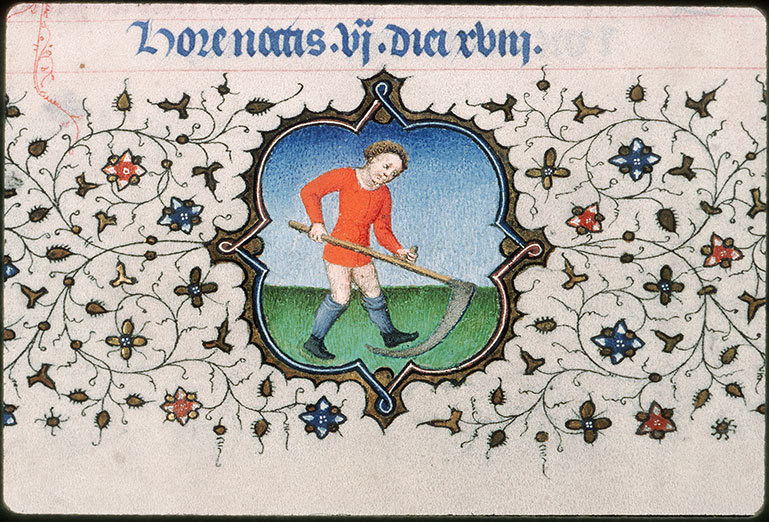 Hore noctis . vj . diei xviij .